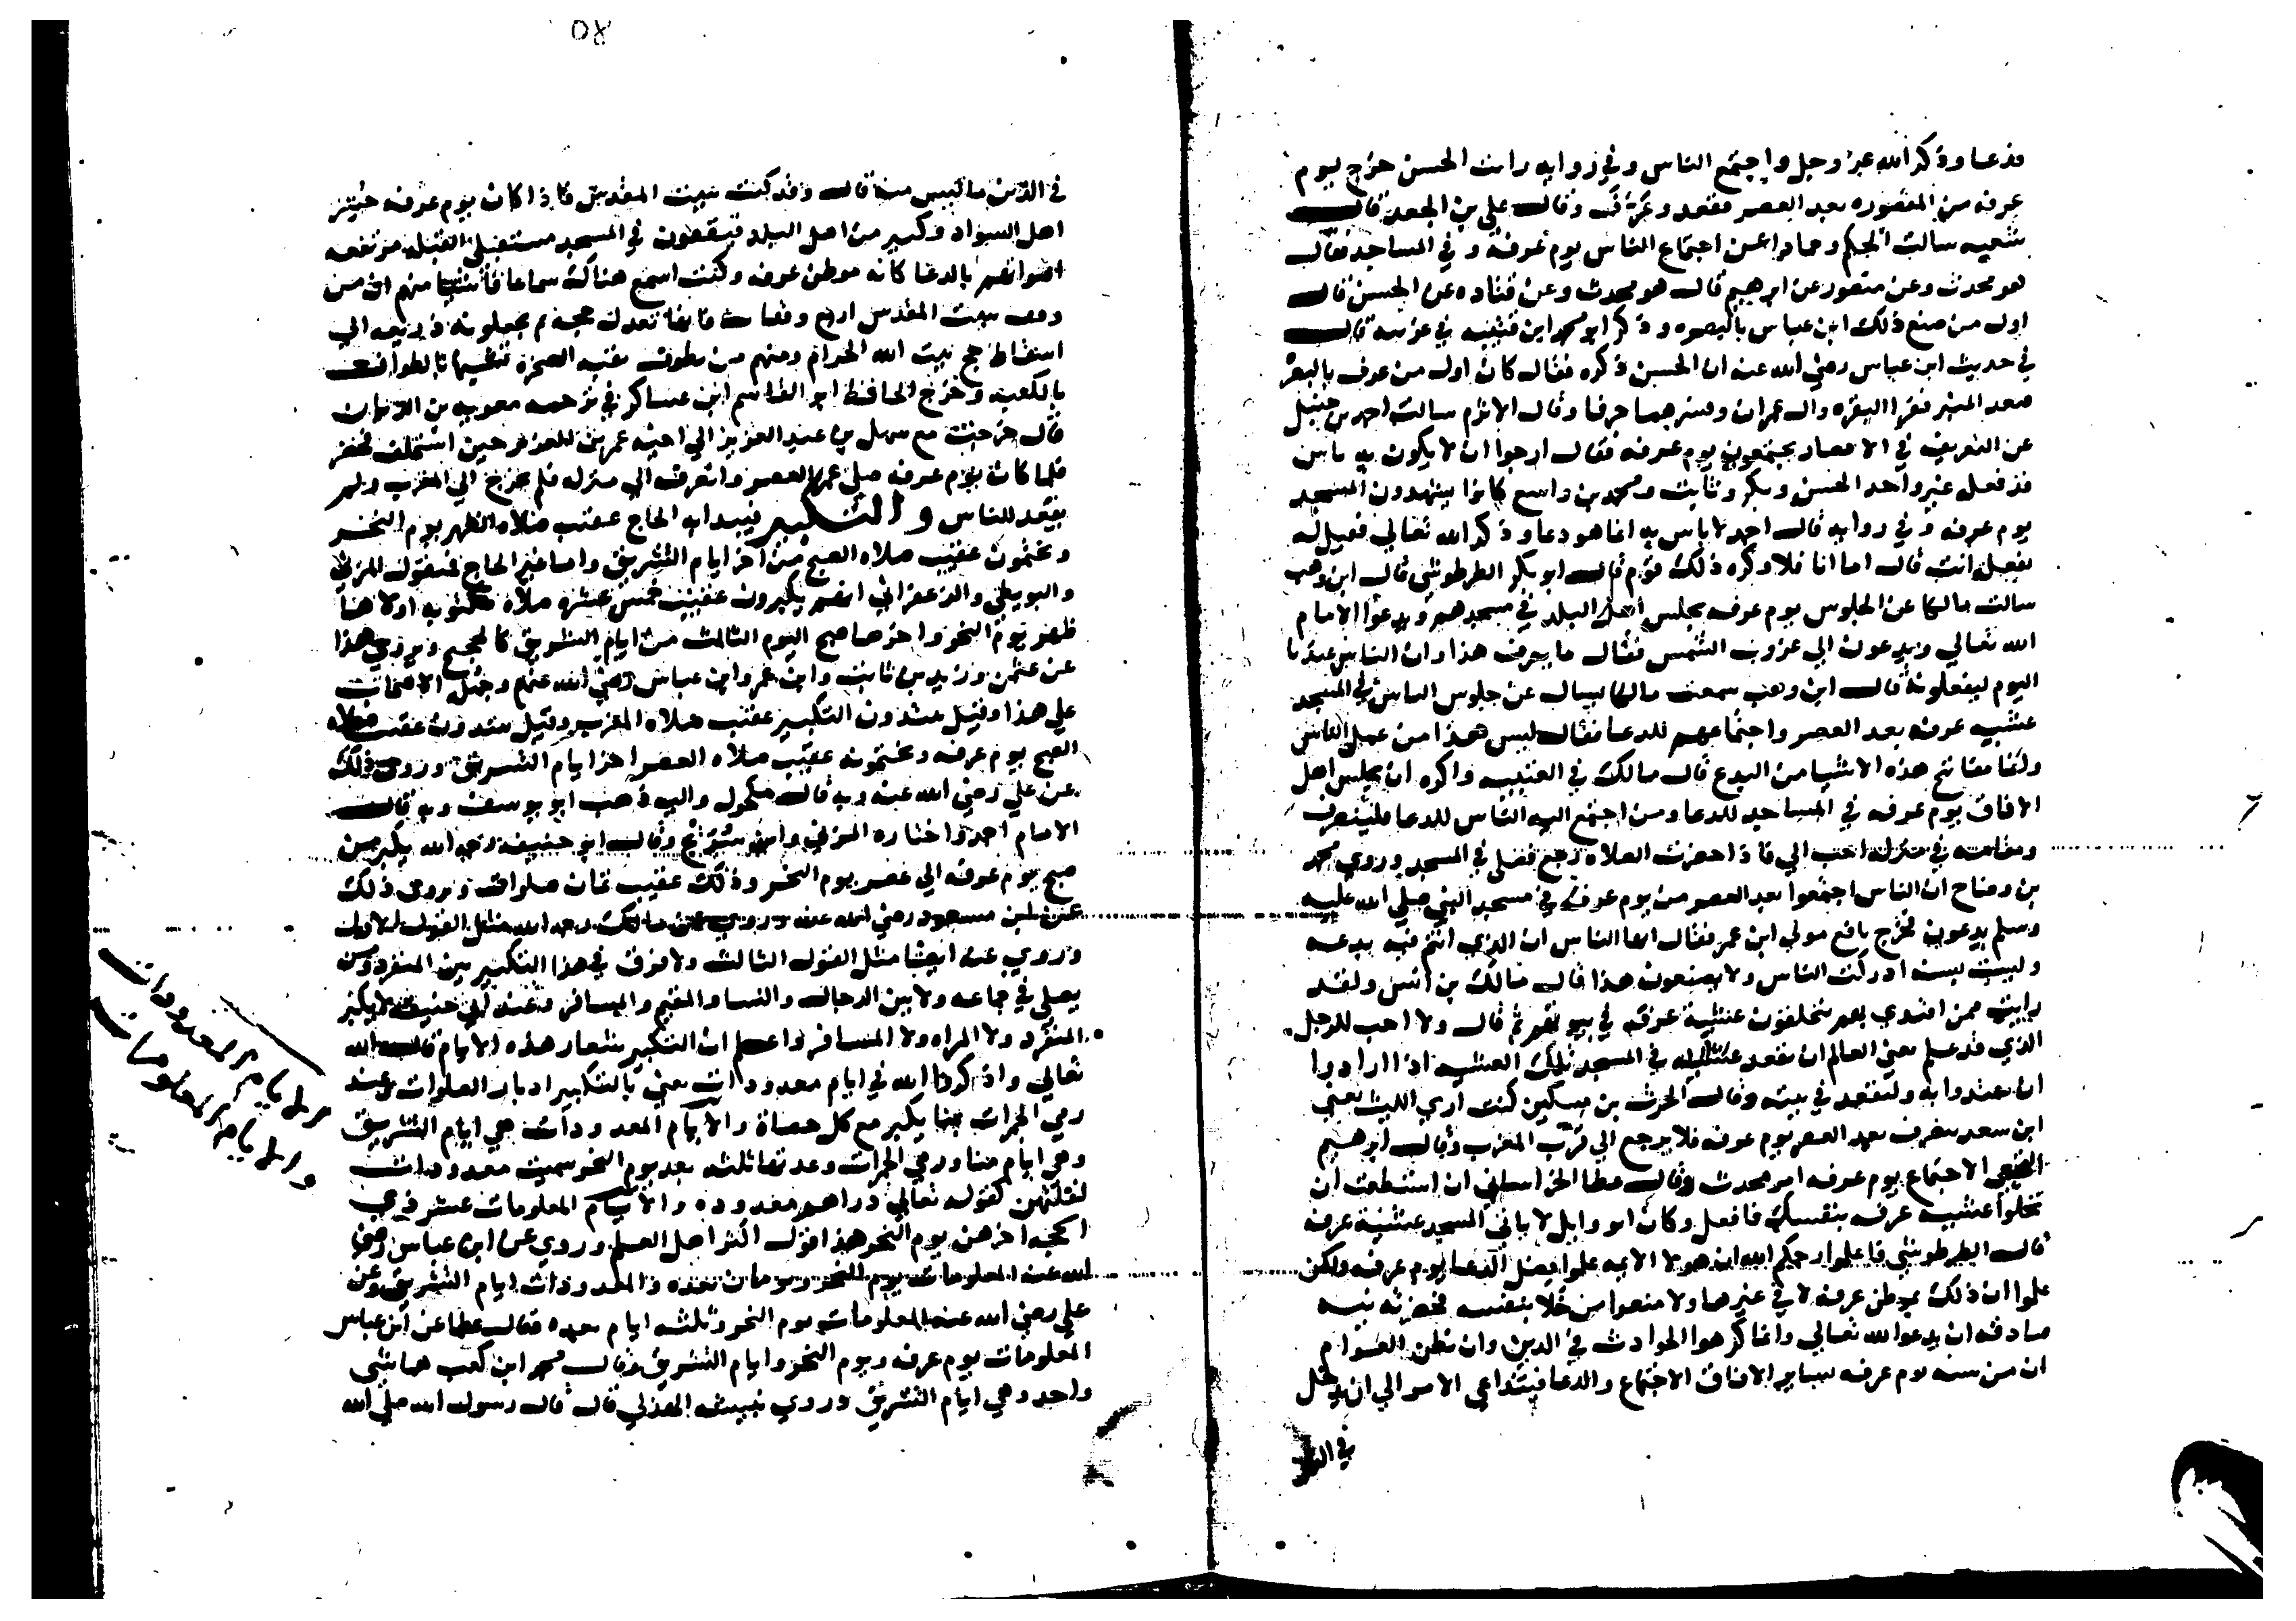 فدعا وذكر الله عز وجل واجتمع الناس وفي روايه رايت الحسن خرج يوم
عرفه من المقصوره بعد العصر فقعد وعرّف وقال علي بن الجعد قال
شعبه سالت الحكم وحمادا عن اجتماع الناس يوم عرفه وفي المساجد فقال
هو محدث وعن منصور عن ابرهيم قال هو محدث وعن قتاده عن الحسن قال
اول من صنع ذلك ابن عباس بالبصره وذكر ابو محمد ابن قتيبه في غريبه قال
في حديث ابن عباس رضي الله عنه ان الحسن ذكره فقال كان اول من عرف بالبصره
صعد المنبر فقرا البقره وال عمران وفسرهما حرفا حرفا وقال الاثرم سالت احمد بن حنبل
عن التعريف في الامصار يجتمعون يوم عرفه فقال ارجوا ان لا يكون به باس
قد فعله غير واحد الحسن وبكر وثابت ومحمد بن واسع كانوا يشهدون المسجد
يوم عرفه وفي روايه قال احمد لا باس به انما هو دعا وذكر الله تعالي فقيل له
تفعله انت قال اما انا فلا وكره ذلك قوم قال ابو بكر الطرطوشي قال ابن وهب
سالت مالكا عن الجلوس يوم عرفه يجلس اهل البلد في مسجدهم ويدعوا الامام
الله تعالي ويدعون الي غروب الشمس فقال ما يعرف هذا وان الناس عندنا
اليوم ليفعلونه قال ابن وهب سمعت مالكا يسال عن جلوس الناس في المسجد
عشيه عرفه بعد العصر واجتماعهم للدعا فقال ليس هذا من عمل الناس
وانما مفاتح هذه الاشيا من البدع قال مالك في العتبيه واكره ان يجلس اهل
الافاق يوم عرفه في المساجد للدعا ومن اجتمع اليه الناس للدعا فلينصرف
ومقامه في منزله احب الي فاذا حضرت الصلاه رجع فصلي في المسجد وروي محمد
بن وضاح ان الناس اجتمعوا بعد العصر من يوم عرفه في مسجد النبي صلي الله عليه
وسلم يدعون فخرج نافع مولي ابن عمر فقال ايها الناس ان الذي انتم فيه بدعه
وليست بسنه ادركت الناس ولا يصنعون هذا قال مالك بن انس ولقد
رايت ممن اقتدي بهم يتخلفون عشية عرفه في بيوتهم ثم قال ولا احب للرجل
الذي قد علم يعني العالم ان يقعد عشيه في المسجد تلك العشيه اذا ارادوا
ان يقتدوا به وليقعد في بيته وقال الحرث بن مسكين كنت اري الليث يعني
ابن سعد ينصرف بعد العصر يوم عرفه فلا يرجع الي قرب المغرب وقال ابرهيم
النخعي الاجتماع يوم عرفه امر محدث وقال عطا الخراساني ان استطعت ان
تخلوا عشيه عرفه بنفسك فافعل وكان ابو وايل لا ياتي المسجد عشية عرفه
قال الطرطوشي فاعلموا رحمكم الله ان هولا الايمه علموا فضل الدعا يوم عرفه ولكن
علموا ان ذلك بموطن عرفه لا في غيرها ولا منعوا من خلا بنفسه فحضرته نيه
صادقه ان يدعوا الله تعالي وانما كرهوا الحوادث في الدين وان يظن العوام
ان من سنه يوم عرفه بساير الافاق الاجتماع والدعا فيتداعي الامر الي ان يدخل
في الدين
٥٨
في الدين ما ليس منه قال وقد كنت ببيت المقدس فاذا كان يوم عرفه حشر
اهل السواد وكثير من اهل البلد فيقفون في المسجد مستقبلي القبله مرتفعه
اصواتهم بالدعا كانه موطن عرفه وكنت اسمع هناك سماعا فاشيا منهم ان من
وقف ببيت المقدس اربع وقفات فانها تعدل حجه ثم يجعلونه ذريعه الي
اسقاط حج بيت الله الحرام ومنهم من يطوف بقبه الصخره تشبيها بالطواف
بالكعبه وخرج الحافظ ابو القاسم ابن عساكر في ترجمه معويه بن الريان
قال خرجت مع سهل بن عبد العزيز الي اخيه عمر بن عبد العزيز حين استخلف فحضر
فلما كان يوم عرفه صلي عمر العصر وانصرف الي منزله فلم يخرج الي المغرب ولم
يقعد للناس والتكبير فيبدا به الحاج عقب صلاه الظهر يوم النحر
ويختمون عقيب صلاه الصبح من اخر ايام التشريق واما غير الحاج فنقول المزني
والبويطي والزعفراني انهم يكبرون عقيب خمس عشره صلاه مكتوبه اولاها
ظهر يوم النحر واخرها صبح اليوم الثالث من ايام التشريق كالحجيج ويروي هذا
عن عثمن وزيد بن ثابت وابن عمر وابن عباس رضي الله عنهم وجل الاصحاب
علي هذا وقيل يبتدون التكبير عقب صلاه المغرب وقيل يبتدون عقب صلاه
الصبح يوم عرفه ويختمونه عقيب صلاه العصر اخر ايام التشريق وروي ذلك
عن علي رضي الله عنه وبه قال مكحول واليه ذهب ابو يوسف وبه قال
الامام احمد واختاره المزني وابن سريج وقال ابو حنيفه رحمه الله يكبر من
صبح يوم عرفه الي عصر يوم النحر وذلك عقيب ثمان صلوات ويروي ذلك
عن ابن مسعود رضي الله عنه وروي عن مالك رحمه الله مثل القول الاول
وروي عنه ايضا مثل القول الثالث ولا فرق في هذا التكبير بين المنفرد ومن
يصلي في جماعه ولا بين الرجال والنسا والمقيم والمسافر وعند ابي حنيفه لا يكبر
المنفرد ولا المراه ولا المسافر واعلم ان التكبير شعار هذه الايام قال الله
تعالي واذكروا الله في ايام معدودات يعني بالتكبير ادبار الصلوات وعند
رمي الجمرات بمنا يكبر مع كل حصاة والايام المعدودات هي ايام التشريق
وهي ايام منا ورمي الجمرات وعدتها ثلثه بعد يوم النحر سميت معدودات
لقلتهن كقوله تعالي دراهم معدوده والايام المعلومات عشر ذي
الحجه اخرهن يوم النحر هذا قول اكثر اهل العلم وروي عن ابن عباس رضي
الله عنه المعلومات يوم النحر ويومان بعده والمعدودات ايام التشريق وعن
علي رضي الله عنه المعلومات يوم النحر وثلثه ايام بعده وقال عطا عن ابن عباس
المعلومات يوم عرفه ويوم النحر وايام التشريق وقال محمد ابن كعب هما شي
واحد وهي ايام التشريق وروي نبيشه الهذلي قال قال رسول الله صلي الله
الايام المعدودات
والايام المعلومات